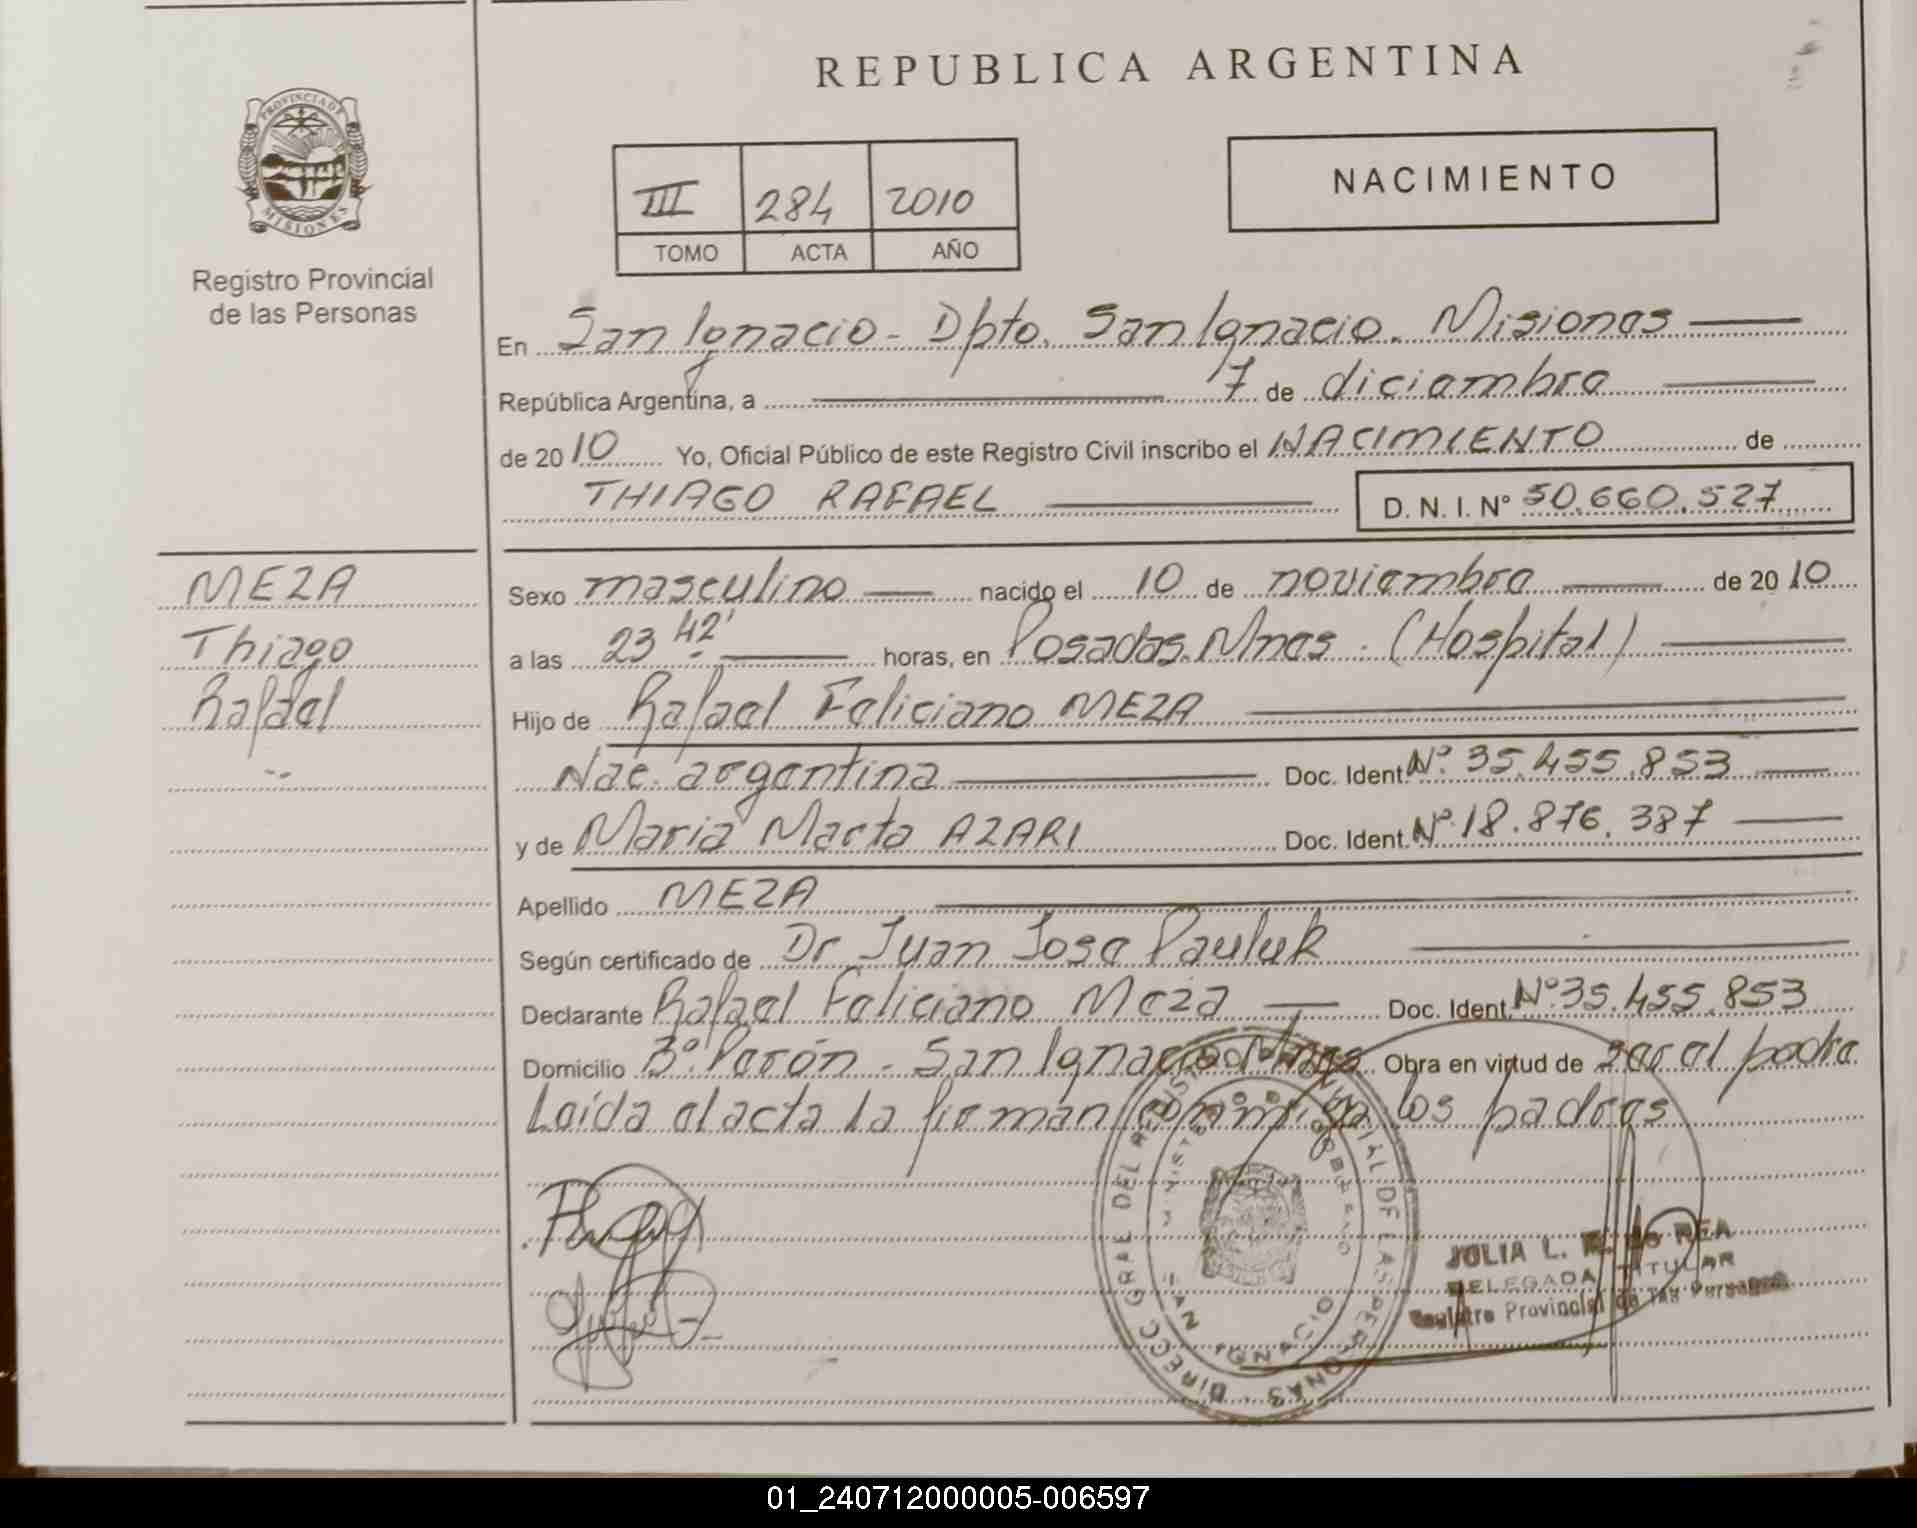 REPUBLICA ARGENTINA
PROVINCIA DE
MISIONES
Registro Provincial
de las Personas
III 284 2010
TOMO ACTA AÑO
NACIMIENTO
En San Ignacio - Dpto. San Ignacio. Misiones
República Argentina, a 7 de diciembre
de 2010 Yo, Oficial Público de este Registro Civil inscribo el NACIMIENTO de
THIAGO RAFAEL D. N. I. Nº 50.660.527
MEZA
Thiago
Rafael
Sexo masculino nacido el 10 de noviembre de 2010
a las 23 42' horas, en Posadas. Mnes. (Hospital)
Hijo de Rafael Feliciano MEZA
Nac. argentina Doc. Ident. Nº 35.455.853
y de Maria Marta AZARI Doc. Ident. Nº 18.876.387
Apellido MEZA
Según certificado de Dr Juan Jose Pauluk
Declarante Rafael Feliciano Meza Doc. Ident. Nº 35.455.853
Domicilio Bº. Perón - San Ignacio Mnes. Obra en virtud de ser el padre
Leida el acta la firman conmigo los padres
DIRECC GRAL DEL REGISTRO PROVINCIAL DE LAS PERSONAS
MINISTERIO DE GOBIERNO
SAN IGNACIO
JULIA L. REA
DELEGADA TITULAR
Registro Provincial de las Personas
01_240712000005-006597